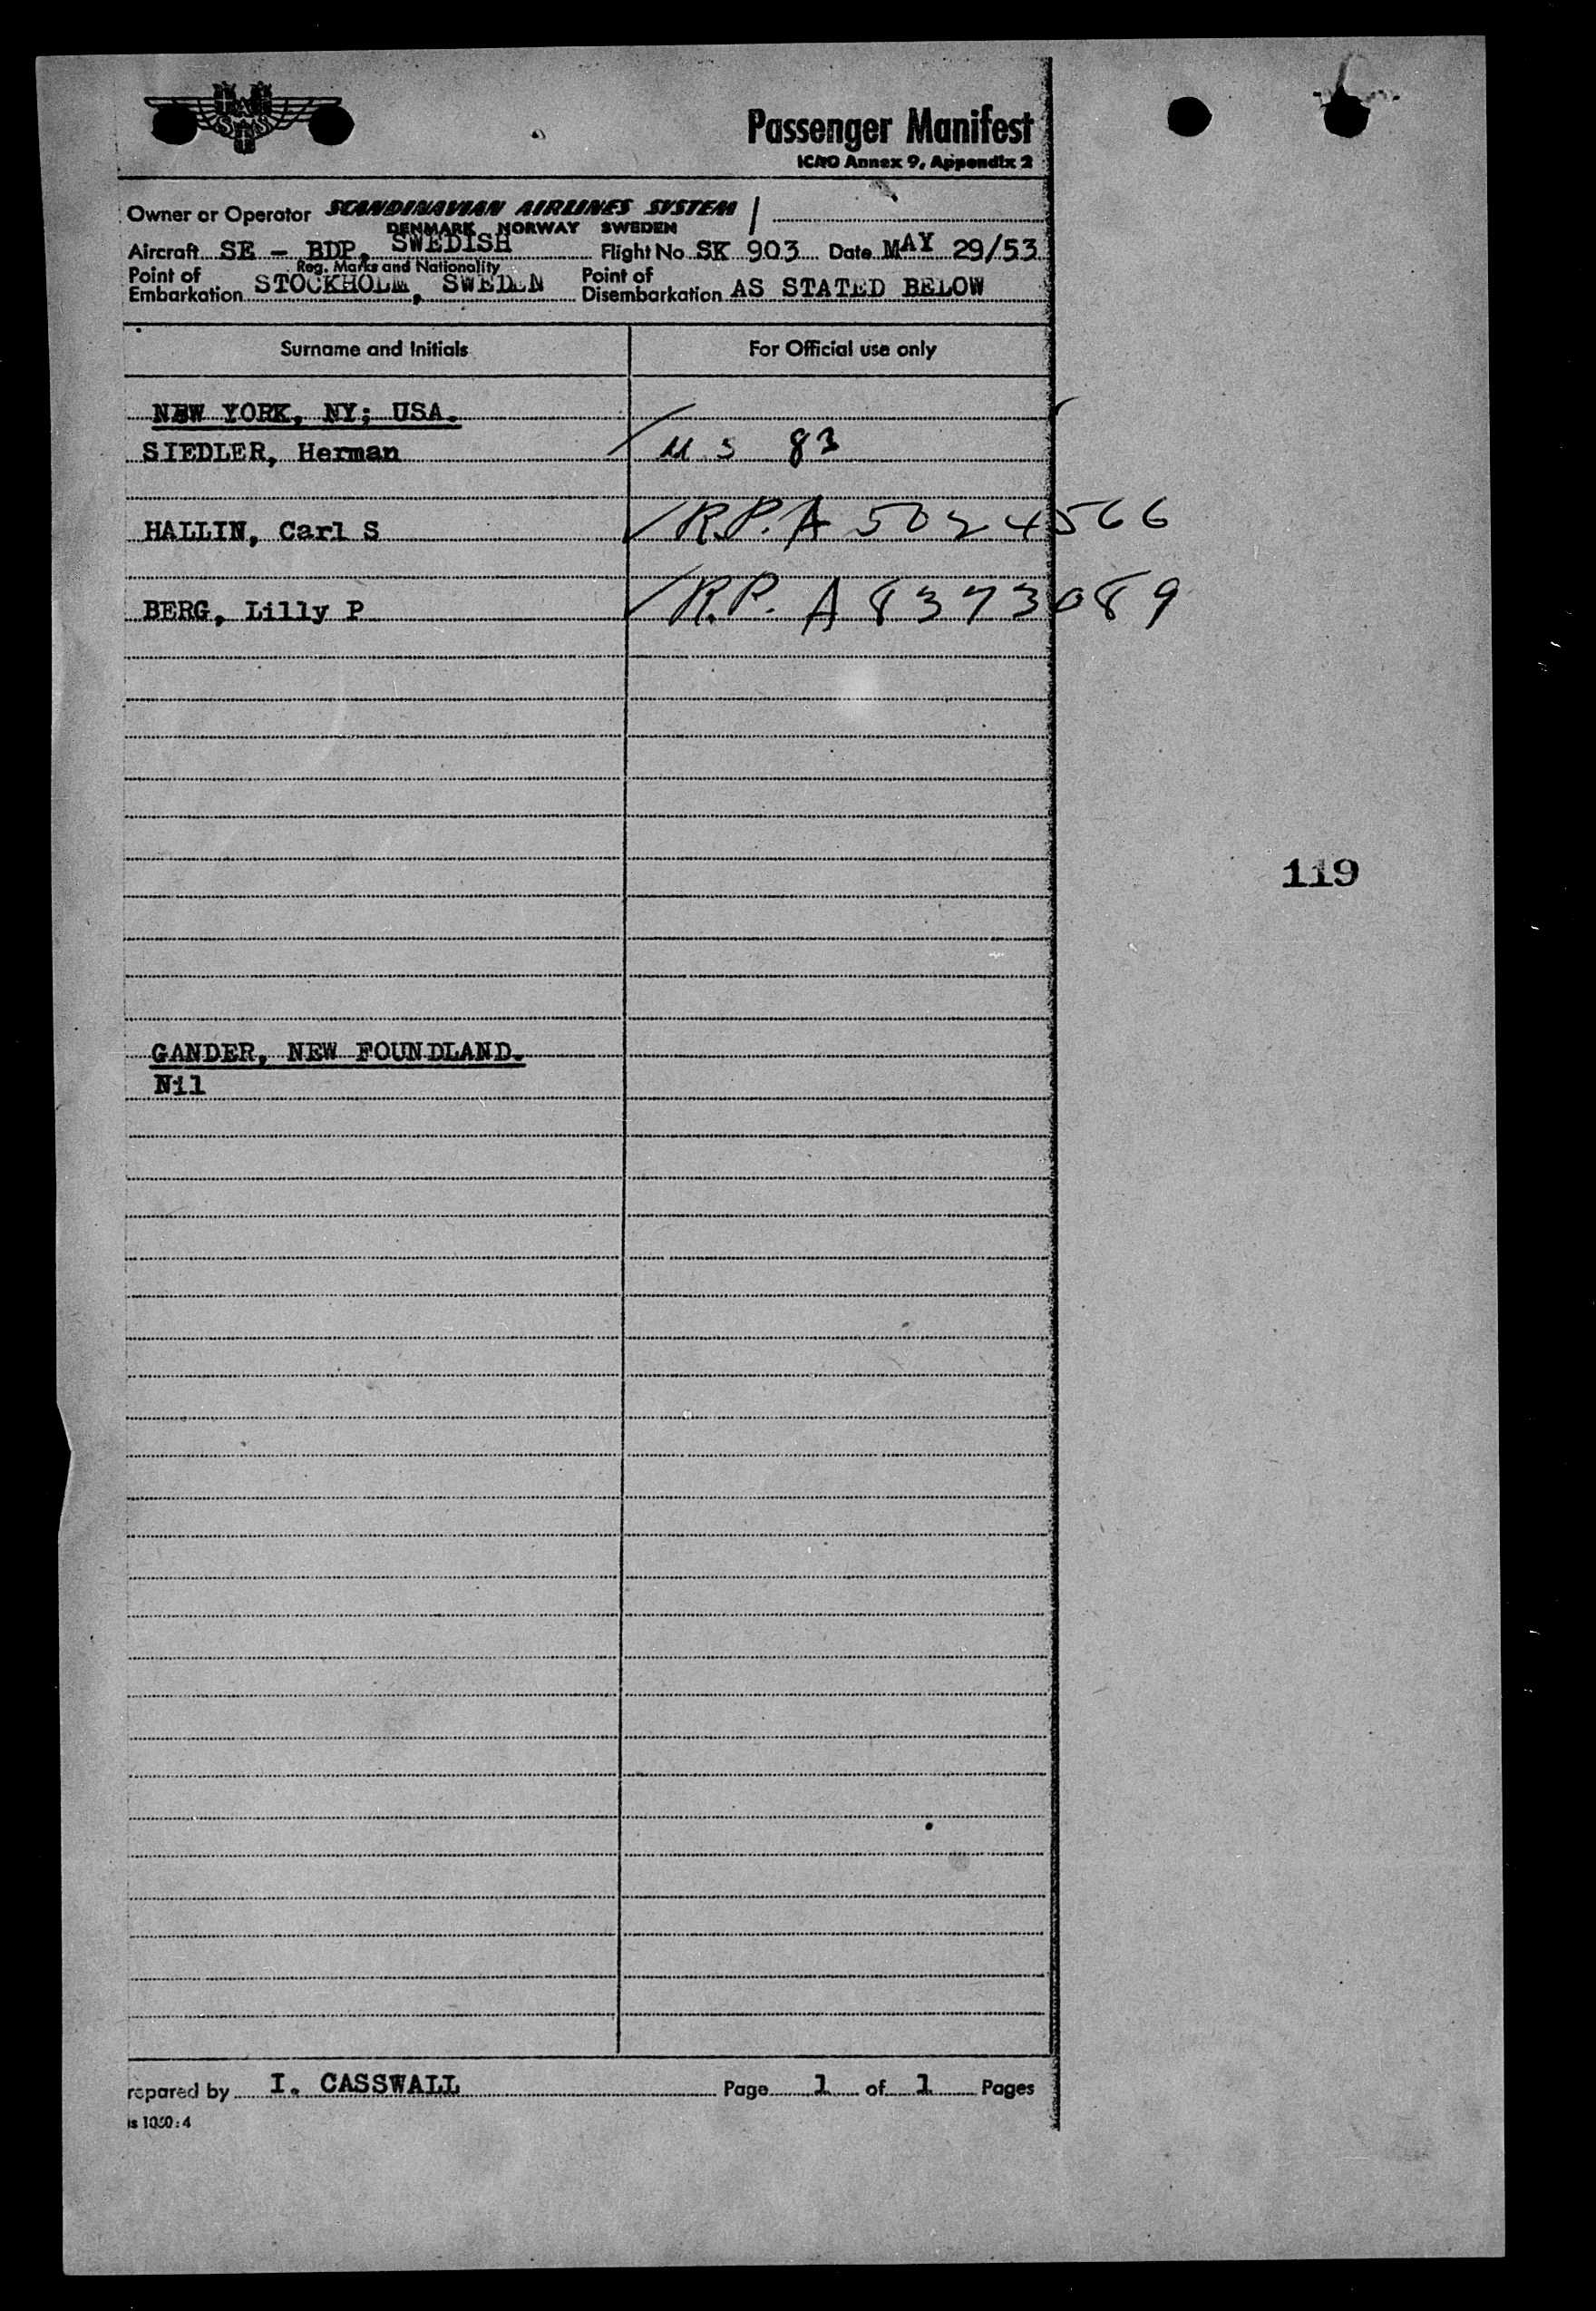 SAS
Passenger Manifest
ICAO Annex 9, Appendix 2
Owner or Operator SCANDINAVIAN AIRLINES SYSTEM
DENMARK NORWAY SWEDEN
Aircraft SE - BDP, SWEDISH Flight No SK 903 Date MAY 29/53
Reg. Marks and Nationality
Point of Embarkation STOCKHOLM, SWEDEN Point of Disembarkation AS STATED BELOW
Surname and Initials For Official use only
NEW YORK, NY; USA.
SIEDLER, Herman U S 83
HALLIN, Carl S R.P. A 5024566
BERG, Lilly P R.P. A 8373089
119
GANDER, NEW FOUNDLAND.
Nil
repared by I. CASSWALL Page 1 of 1 Pages
is 1050:4